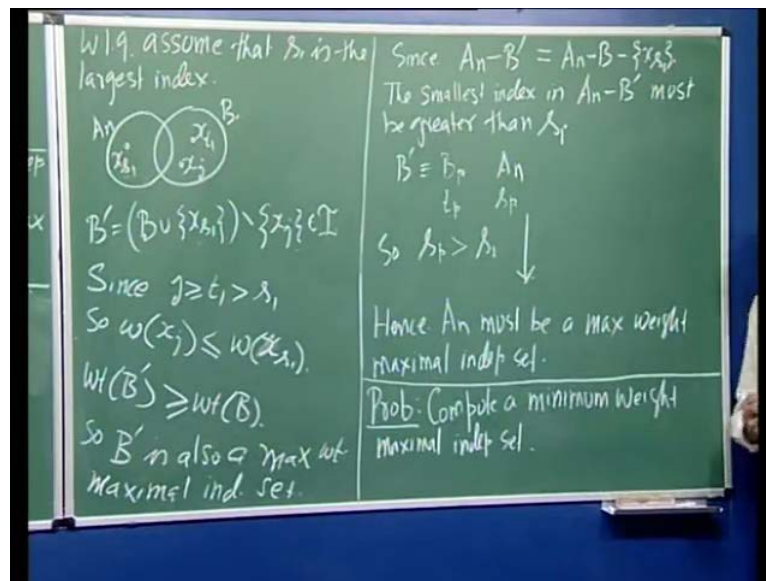 ep
x
W.l.g. assume that s₁ is the
largest index.
An B.
x_{s₁} x_{t₁}
x_j
B' = (B ∪ {x_{s₁}}) \ {x_j} ∈ I
Since j ≥ t₁ > s₁
So w(x_j) ≤ w(x_{s₁}).
wt(B') ≥ wt(B).
So B' is also a max wt
maximal ind. set.
Since An - B' = An - B - {x_{s₁}}
The smallest index in An - B' must
be greater than s₁
B' ≡ B_p An
t_p s_p
So s_p > s₁
Hence An must be a max weight
maximal indep set.
Prob: Compute a minimum weight
maximal indep set.